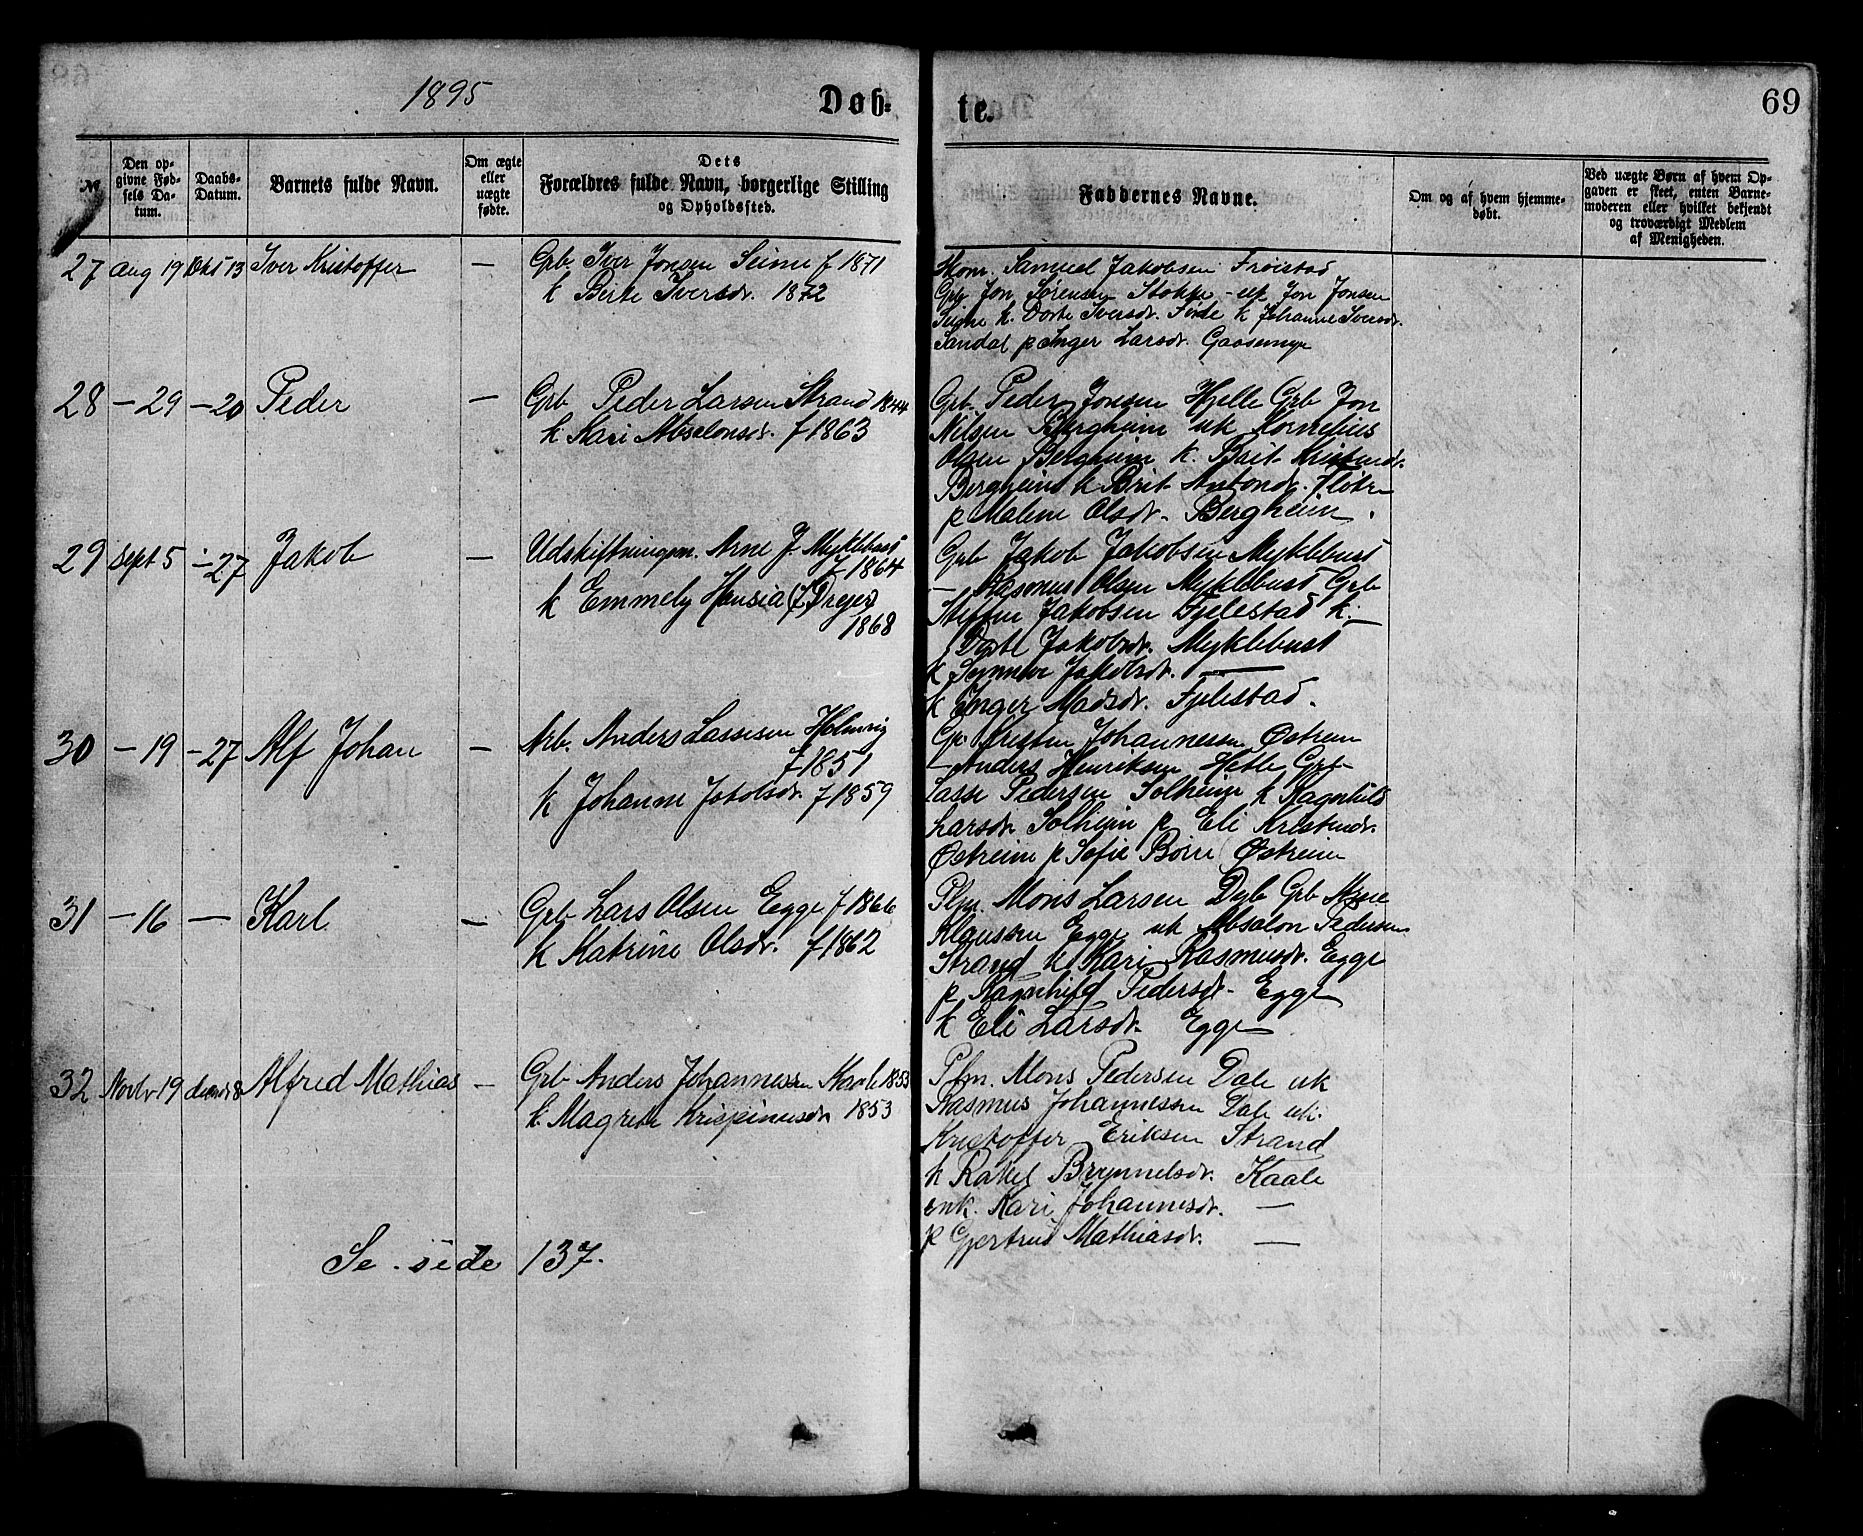 1895
Døb-
te.
69
№
Den op-
givne Fød-
sels Da-
tum.
Daabs-
Datum.
Barnets fulde Navn.
Om ægte
eller
uægte
fødte.
Dets
Forældres fulde Navn, borgerlige Stilling
og Opholdssted.
Faddernes Navne.
Om og af hvem hjemme-
døbt.
Ved uægte Børn af hvem Op-
gaven er skeet, enten Barne-
moderen eller hvilket bekjendt
og troværdigt Medlem
af Menigheden.
27 Aug 19 Okt 13 Iver Kristoffer —
Grb Iver Jonsen Seime f 1871
k Berte Iversdr. 1872
Samuel Jakobsen Frøistad
Grb Jon Sørensen Stokke - uk Jon Jonsen
k. Dorte Iversdr. Førde k Johanne Iversdr.
Sandal p Inger Larsdr. Gaasemyr
28 — 29 — 20 Peder —
Grb Peder Larsen Strand 1844
k. Kari Absalonsdr. f 1863
Grb. Peder Jonsen Hjelle Grb Jon
Nilsen Bergheim uk Kornelius
Olsen Bergheim k. Brit Kristensdr.
Bergheim k Brit Antonsdr. Flokn
p Malene Olsdr. Bergheim.
29 Sept 5 — 27 Jakob —
Udskiftningsm. Arne J Myklebust
f 1864
k Emmely Hansia (f. Dreyer)
1868
Grb Jakob Jakobsen Myklebust
— Rasmus Olsen Myklebust Grb
Steffen Jakobsen Fjelestad k.
Dorte Jakobsdr. Myklebust
k Synneve Jakobsdr. —
k Inger Madsdr. Fjelestad.
30 — 19 — 27 Alf Johan —
Arb. Anders Lassesen Holmvig
f 1851
k Johanne Jakobsdr. f 1859
Gr Kristen Johannessen Østrem
— Anders Henriksen Hetle Grb
Lasse Pedersen Solheim k Ragnhild
Larsdr. Solheim p Eli Kristensdr.
Østreim p Sofie Østreim
31 — 16 — Karl —
Grb Lars Olsen Egge f 1866
k Katrine Olsdr. f 1862
Plm. Mons Larsen Dyb Grb Arne
Klaussen Egge uk Absalon Pedersen
Strand k Kari Rasmusdr. Egge
p Ragnhild Pedersdr. Egge
k Eli Larsdr. Egge
32 Novbr 19 decmbr 8 Alfred Mathias —
Grb Anders Johannessen Kaale 1853
k. Magrete Krispinusdr 1853
Plm. Mons Pedersen Dale uk
Rasmus Johannessen Dale uk.
Kristoffer Eriksen Strand
k Rakel Brynnelsdr. Kaale
enk. Kari Johannesdr. —
p Gjertrud Mathiasdr. —
Se side 137.